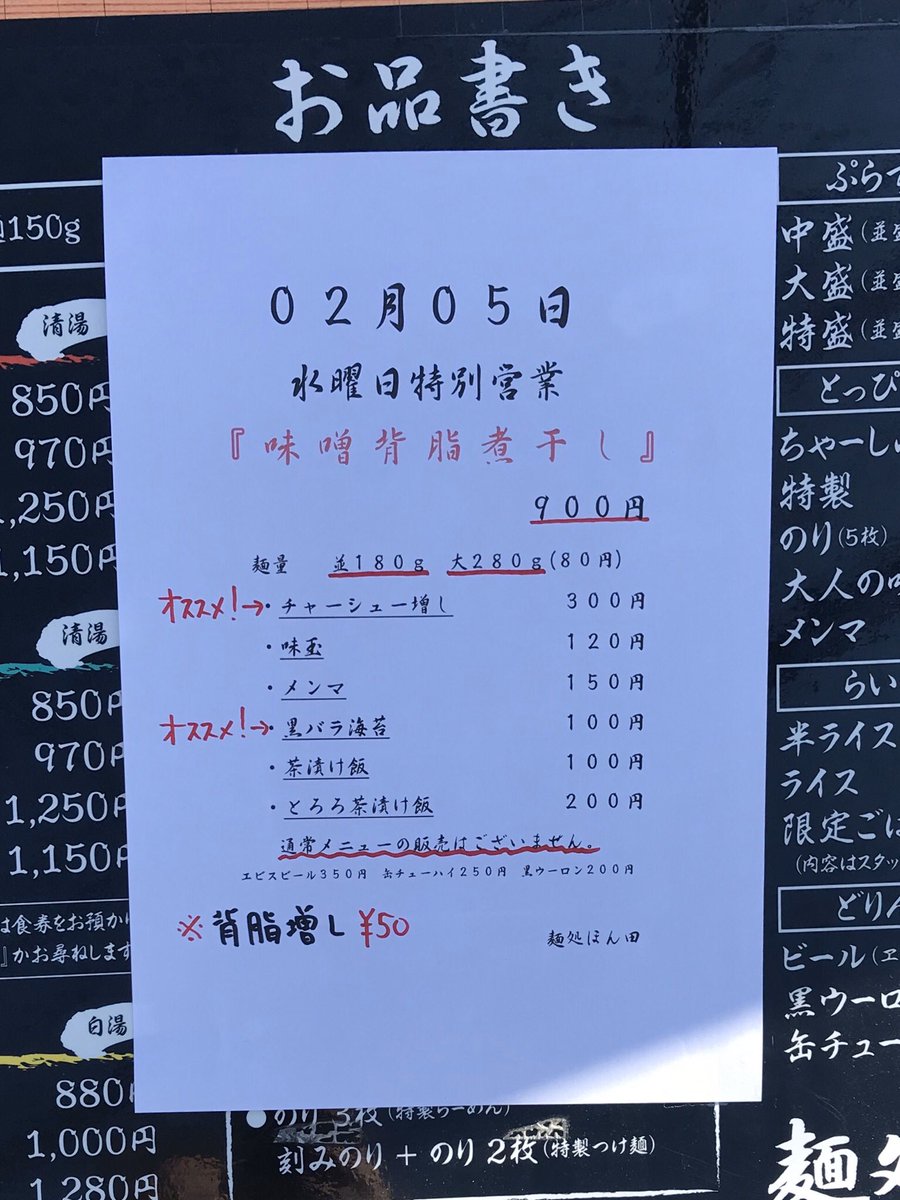 お品書き
150g
清湯
850円
970円
1,250円
1,150円
清湯
850円
970円
1,250円
1,150円
は食券をお預か
』かお尋ねします
白湯
880円
1,000円
1,280円
02月05日
水曜日特別営業
『味噌背脂煮干し』
900円
麺量 並180g 大280g(80円)
オススメ!→・チャーシュー増し 300円
・味玉 120円
・メンマ 150円
オススメ!→・黒バラ海苔 100円
・茶漬け飯 100円
・とろろ茶漬け飯 200円
通常メニューの販売はございません。
エビスビール350円 缶チューハイ250円 黒ウーロン200円
※背脂増し ¥50
麺処ほん田
●のり 3枚(特製らーめん)
刻みのり + のり 2枚(特製つけ麺)
ぷらす
中盛(並盛
大盛(並盛
特盛(並盛
とっぴ
ちゃーしゅ
特製
のり(5枚)
大人の味
メンマ
らい
半ライス
ライス
限定ごは
(内容はスタッ
どりん
ビール(ヱ
黒ウーロ
缶チュー
麺処